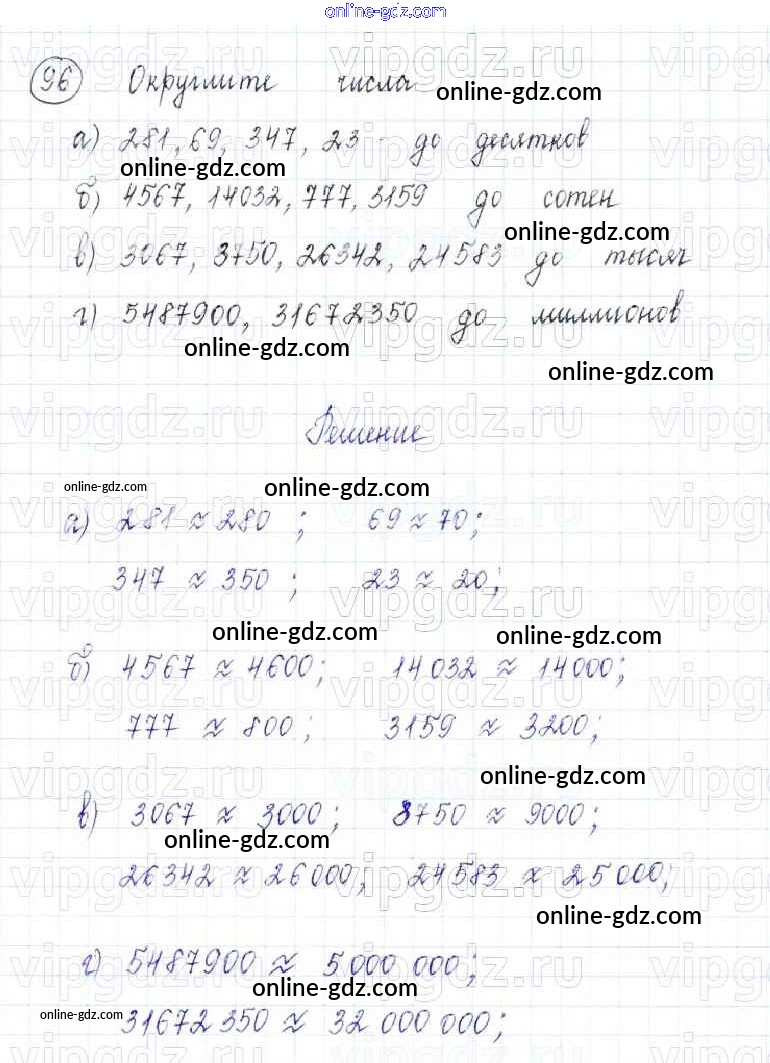 online-gdz.com
96 Округлите числа
online-gdz.com
а) 281, 69, 347, 23 - до десятков
online-gdz.com
б) 4567, 14032, 777, 3159 до сотен
online-gdz.com
в) 3067, 3750, 26342, 24583 до тысяч
г) 5487900, 31672350 до миллионов
online-gdz.com
online-gdz.com
Решение
online-gdz.com
online-gdz.com
а) 281 ≈ 280 ; 69 ≈ 70;
347 ≈ 350 ; 23 ≈ 20;
online-gdz.com
online-gdz.com
б) 4567 ≈ 4600; 14032 ≈ 14000;
777 ≈ 800; 3159 ≈ 3200;
online-gdz.com
в) 3067 ≈ 3000; 8750 ≈ 9000;
online-gdz.com
26342 ≈ 26000; 24583 ≈ 25000;
online-gdz.com
г) 5487900 ≈ 5000 000;
online-gdz.com
online-gdz.com
31672 350 ≈ 32 000 000;
vipgdz.ru